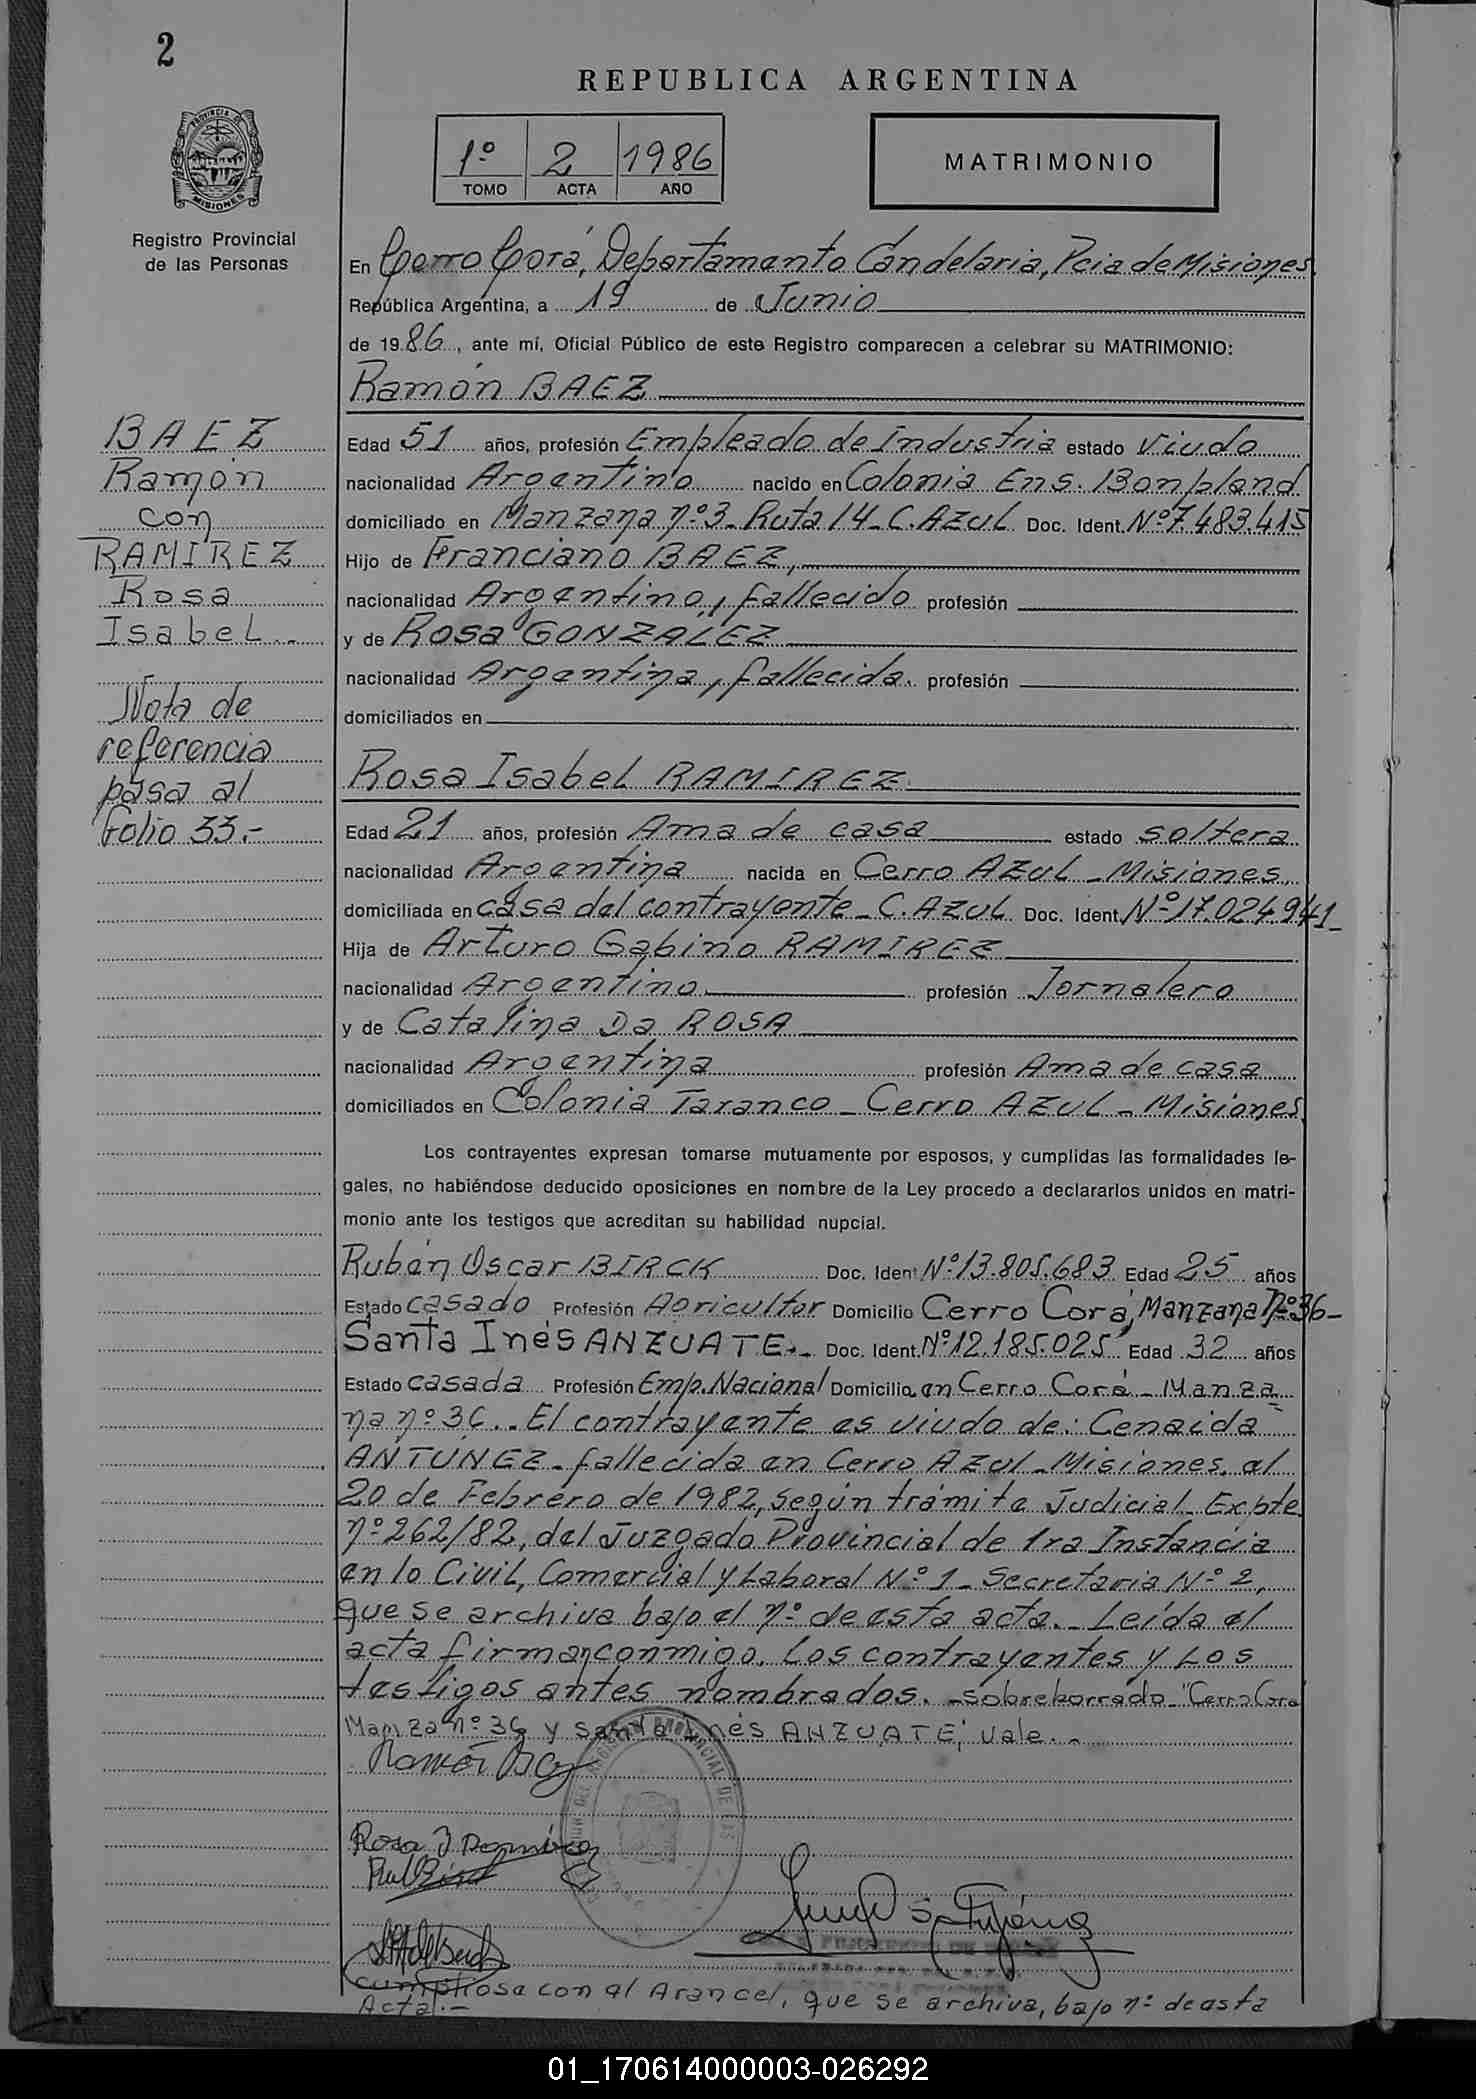 2
REPUBLICA ARGENTINA
1º 2 1986
TOMO ACTA AÑO
MATRIMONIO
PROVINCIA DE
MISIONES
Registro Provincial
de las Personas
En Cerro Corá, Departamento Candelaria, Pcia de Misiones.
República Argentina, a 19 de Junio
de 1986, ante mí, Oficial Público de este Registro comparecen a celebrar su MATRIMONIO:
Ramón BAEZ
BAEZ
Ramón
con
RAMIREZ
Rosa
Isabel.-
Nota de
referencia
pasa al
folio 33.-
Edad 51 años, profesión Empleado de Industria estado viudo
nacionalidad Argentino nacido en Colonia Ens. Bonpland
domiciliado en Manzana nº 3 - Ruta 14 - C. AZUL Doc. Ident. Nº 7.483.415
Hijo de Franciano BAEZ,
nacionalidad Argentino, fallecido profesión
y de Rosa GONZALEZ
nacionalidad Argentina, fallecida. profesión
domiciliados en
Rosa Isabel RAMIREZ
Edad 21 años, profesión Ama de casa estado soltera
nacionalidad Argentina nacida en Cerro AZUL - Misiones.
domiciliada en casa del contrayente - C. AZUL Doc. Ident. Nº 17.024.941-
Hija de Arturo Gabino RAMIREZ
nacionalidad Argentino profesión Jornalero
y de Catalina Da ROSA
nacionalidad Argentina profesión Ama de casa
domiciliados en Colonia Taranco - Cerro AZUL - Misiones.
Los contrayentes expresan tomarse mutuamente por esposos, y cumplidas las formalidades le-
gales, no habiéndose deducido oposiciones en nombre de la Ley procedo a declararlos unidos en matri-
monio ante los testigos que acreditan su habilidad nupcial.
Rubén Oscar BIRCK Doc. Ident Nº 13.805.683 Edad 25 años
Estado casado Profesión Agricultor Domicilio Cerro Corá, Manzana nº 36-
Santa Inés ANZUATE.- Doc. Ident. Nº 12.185.025 Edad 32 años
Estado casada Profesión Emp. Nacional Domicilio en Cerro Corá - Manza
na nº 36.. El contrayente es viudo de: Cenaida
ANTUNEZ - fallecida en Cerro AZUL - Misiones, el
20 de Febrero de 1982, según trámite Judicial - Expte
nº 262/82, del Juzgado Provincial de 1ra Instancia
en lo Civil, Comercial y Laboral Nº 1 - Secretaria Nº 2,
que se archiva bajo el nº de esta acta. - Leída el
acta firman conmigo, los contrayentes y Los
testigos antes nombrados. - sobreborrado "Cerro Cora
Manza nº 36 y Santa Inés ANZUATE", vale. -
Ramón
Rosa I Ramirez
Cumpliose con el Arancel, que se archiva, bajo nº de esta
Acta.-
01_170614000003-026292